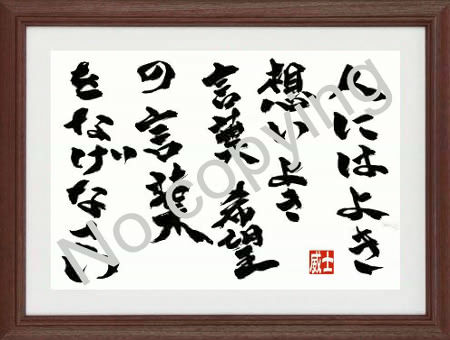 人にはよき
想いよき
言葉希望
の言葉
をなげなさい
威士
No copying